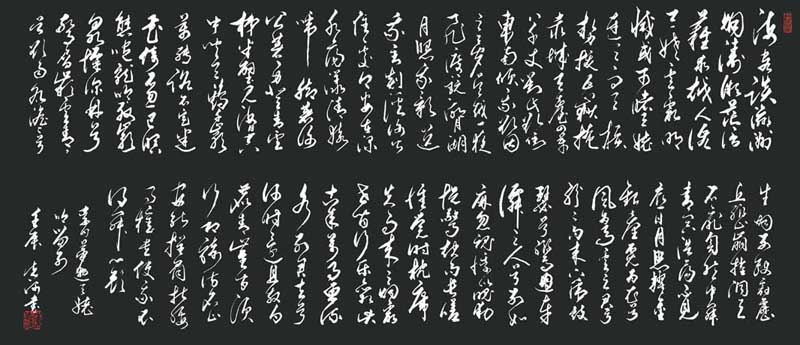 海客谈瀛洲
烟涛微茫信
难求越人语
天姥云霞明
灭或可睹天姥
连天向天横
势拔五岳掩
赤城天台四万
八千丈对此欲倒
东南倾我欲因
之梦吴越一夜
飞度镜湖月湖
月照我影送
我至剡溪谢公
宿处今尚在渌
水荡漾清猿
啼脚著谢
公屐身登青云
梯半壁见海日
空中闻天鸡千岩
万转路不定迷
花倚石忽已暝
熊咆龙吟殷岩
泉慄深林兮
惊层巅云青青
兮欲雨水澹澹兮
生烟列缺霹雳
丘峦崩摧洞天
石扉訇然中开
青冥浩荡不见
底日月照耀金
银台霓为衣兮
风为马云之君兮
纷纷而来下虎鼓
瑟兮鸾回车
仙之人兮列如
麻忽魂悸以魄动
恍惊起而长嗟
惟觉时枕席
失向来之烟霞
世间行乐亦如此
古来万事东流
水别君去兮
何时还且放白
鹿青崖间须
行即骑访名山
安能摧眉折腰
事权贵使我不
得开心颜
李白梦游天姥
吟留别